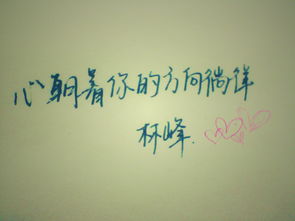 心朝着你的方向徜徉
林峰.